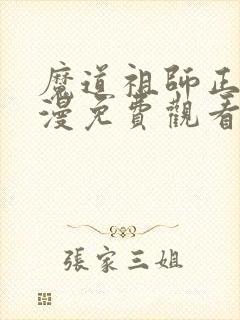 魔道祖師正
漫免費觀看
張家三姐